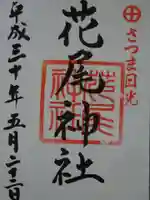 さつま日光
花尾神社
平成三十年五月二十二日